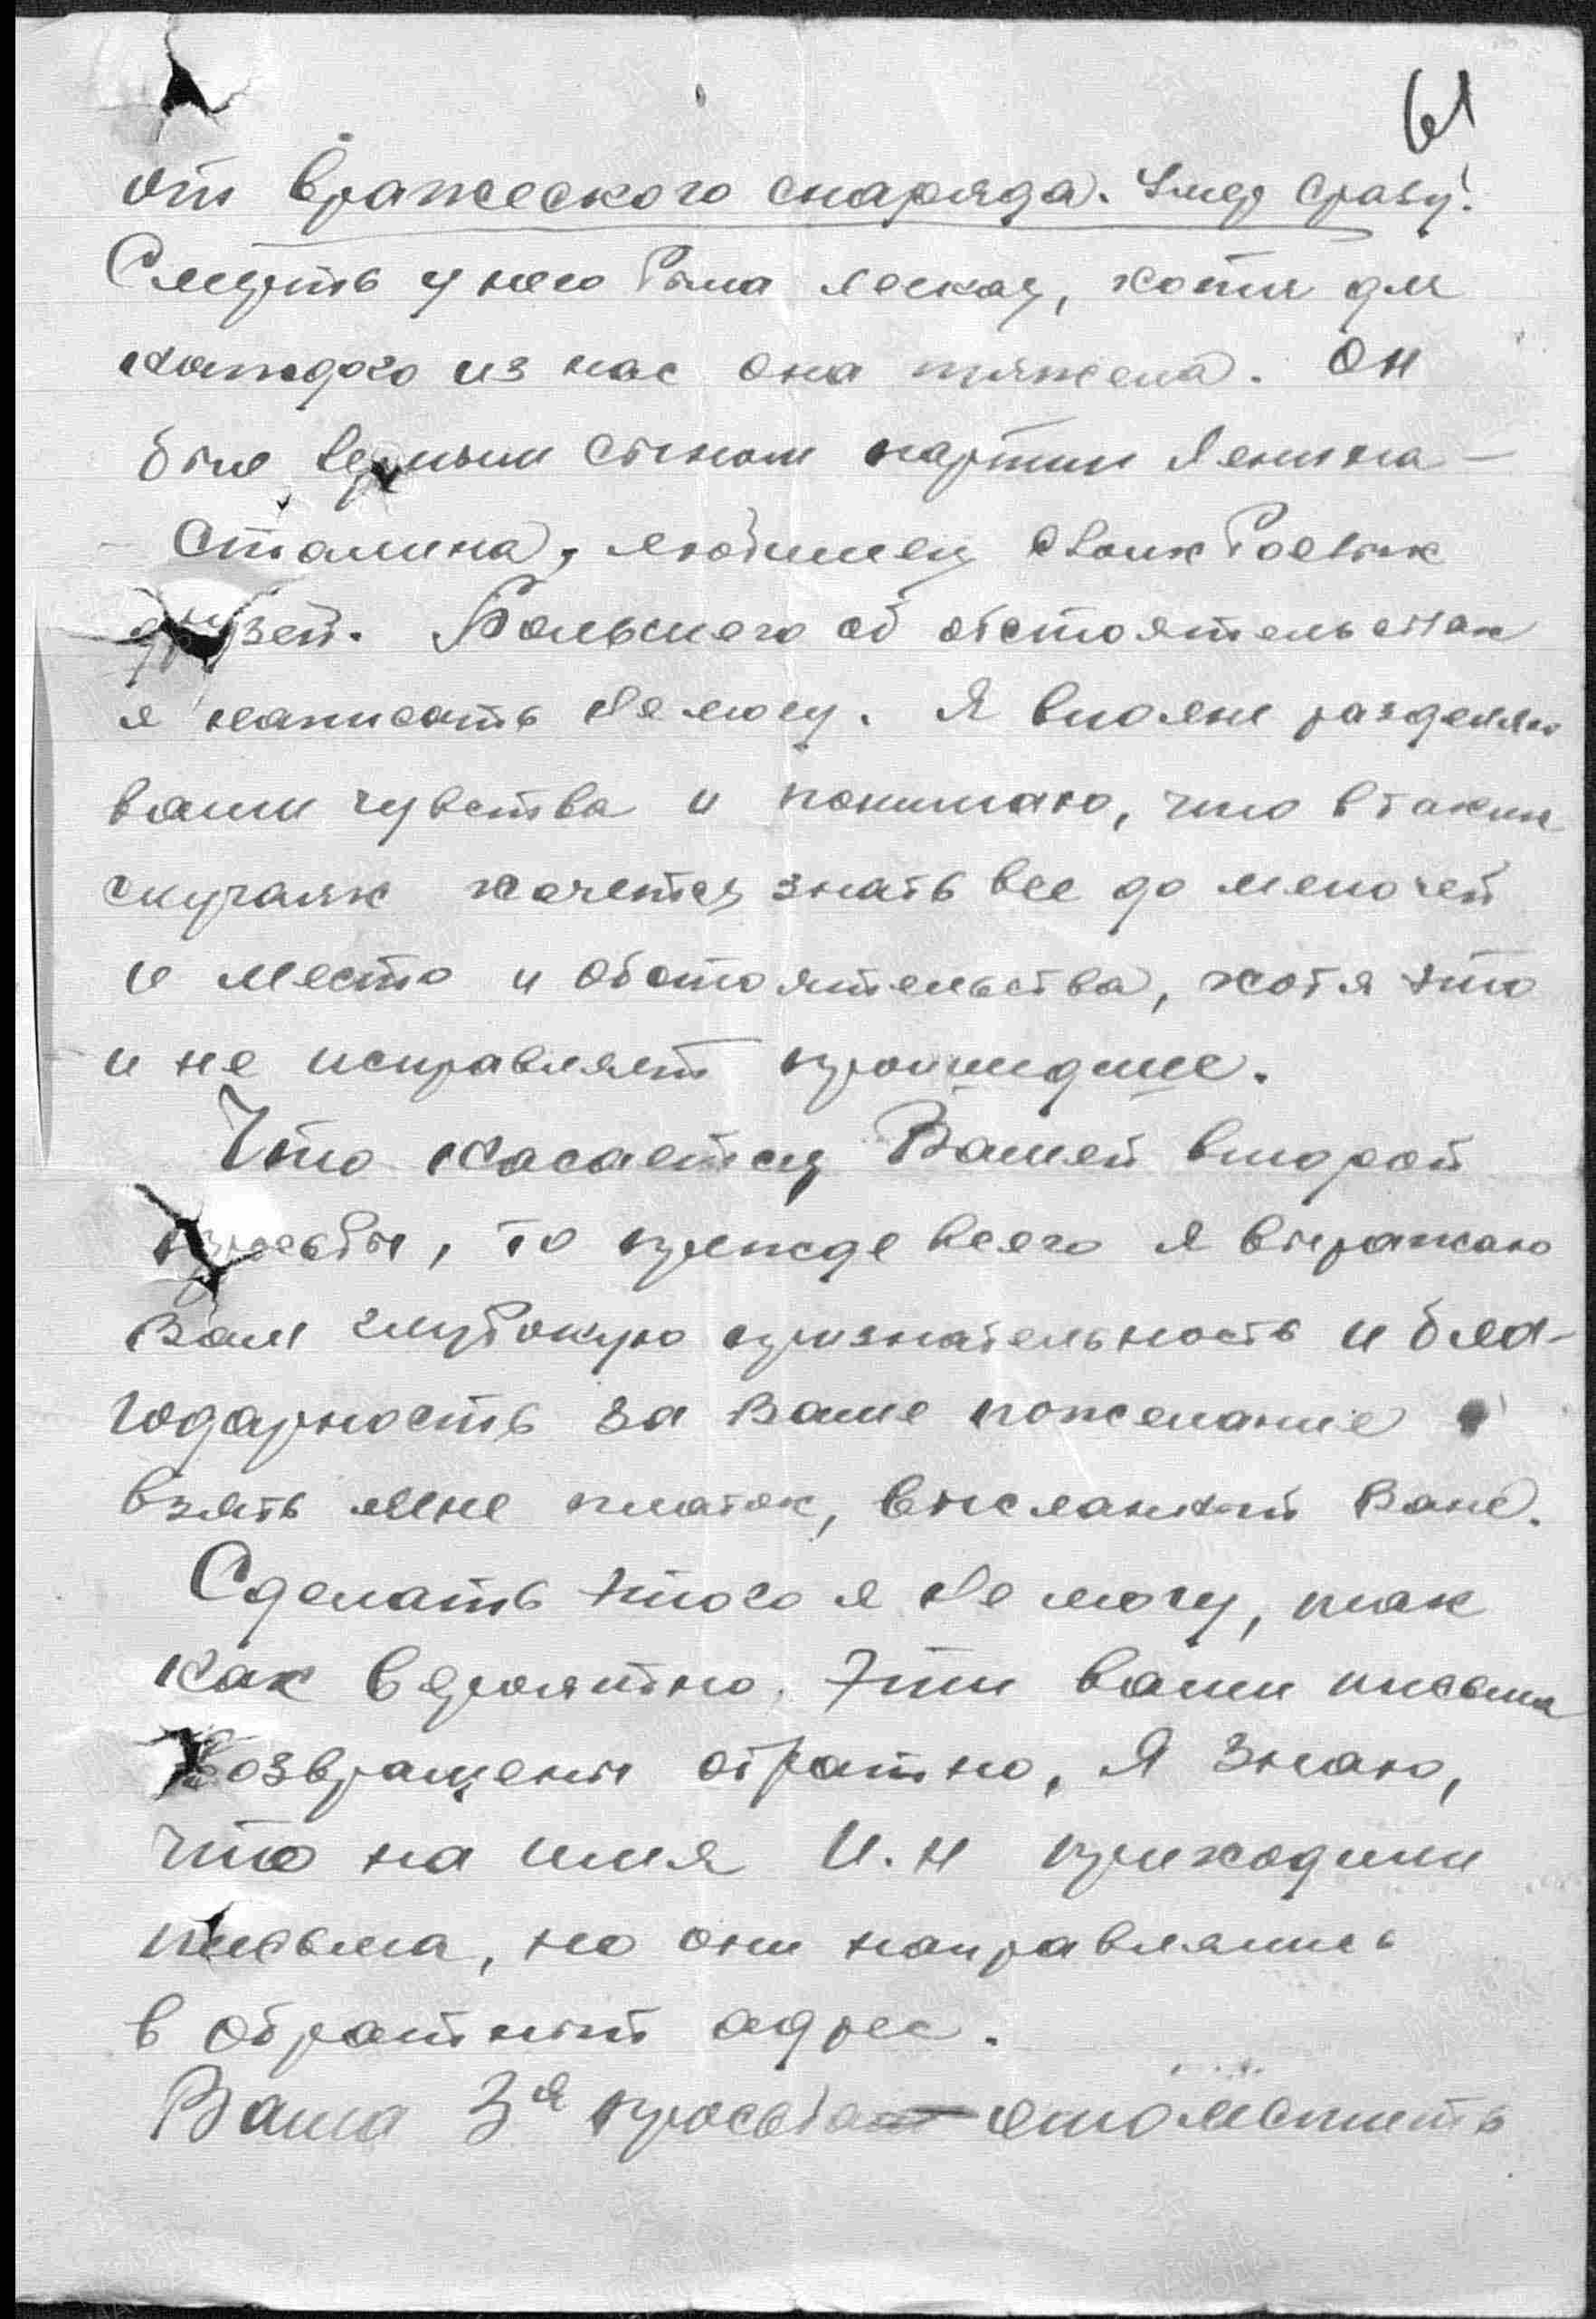 61
от вражеского снаряда. Умер сразу.
Смерть у него была легкая, хотя для
каждого из нас она тяжела. Он
был верным сыном партии Ленина –
– Сталина, любимец своих боевых
друзей. Большего об обстоятельствах
я написать не могу. Я вполне разделяю
ваши чувства и понимаю, что в таких
случаях хочется знать все до мелочей
и место и обстоятельства, хотя это
и не исправляет происшедшее.
Что касается Вашей второй
просьбы, то прежде всего я выражаю
Вам глубокую признательность и бла-
годарность за Ваше пожелание
взять мне платок, высланный Ване.
Сделать этого я не могу, так
как вероятно эти ваши письма
возвращены обратно, Я знаю,
что на имя И.Н приходили
письма, но они направлялись
в обратный адрес.
Ваша 3я просьба – отомстить